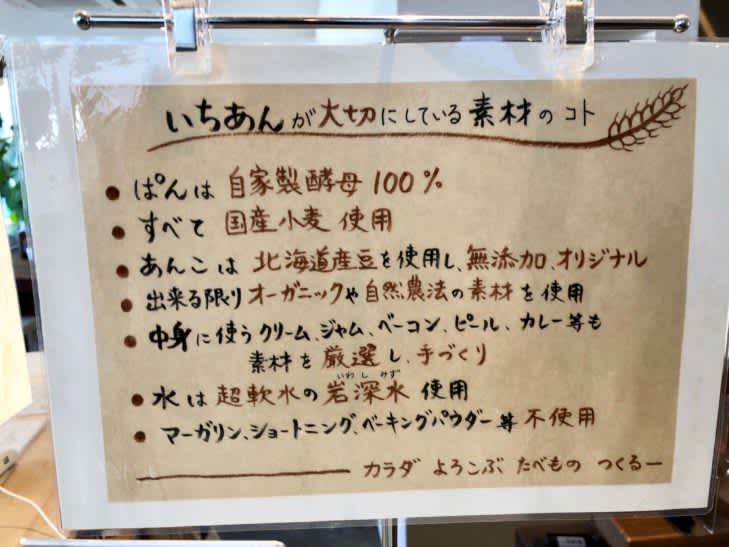 いちあんが大切にしている素材のコト
● ぱんは 自家製酵母 100%
● すべて 国産小麦 使用
● あんこは 北海道産豆を使用し、無添加、オリジナル
● 出来る限りオーガニックや自然農法の素材を使用
● 中身に使うクリーム、ジャム、ベーコン、ピール、カレー等も
素材を厳選し、手づくり
いわ し みず
● 水は超軟水の岩深水 使用
● マーガリン、ショートニング、ベーキングパウダー等 不使用
カラダ よろこぶ たべもの つくるー